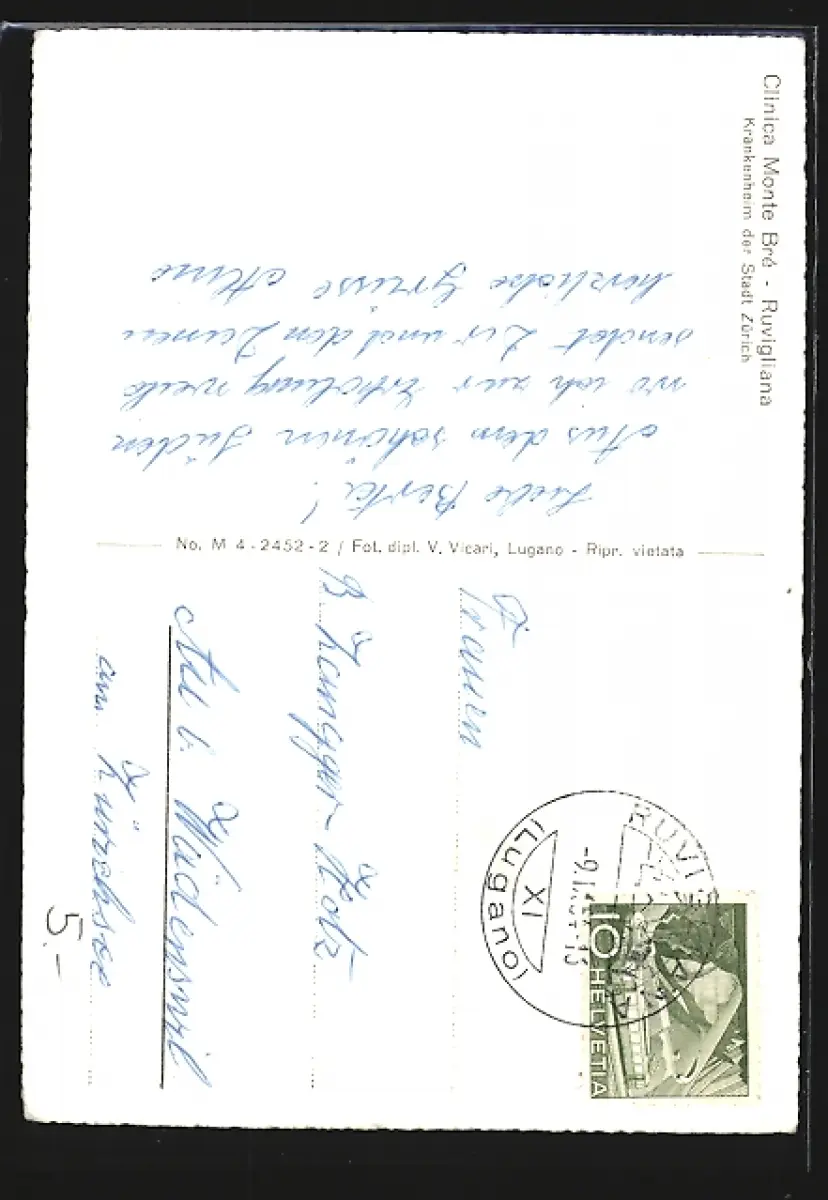 Clinica Monte Brè - Ruvigliana
Krankenheim der Stadt Zürich
Liebe Berta!
Aus dem schönen Süden
wo ich zur Erholung weile
sendet Dir und den Deinen
herzliche Grüsse
No. M 4-2452-2 / Fot. dipl. V. Vicari, Lugano - Ripr. vietata
Frauen
B
Au b. Wädenswil
am Zürichsee
5.-
(Lugano)
XI
10
HELVETIA